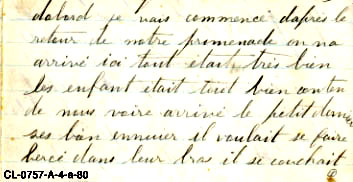 dabord je vais commencé daprès le
retour de notre promenade on na
arrivé ici tout était très bien
les enfant était tout bien conten
de nous voire arrivé le petit dernier
ses bien ennuier il voulait se faire
bercé dans leur bras il se couchait
CL-0757-A-4-a-80